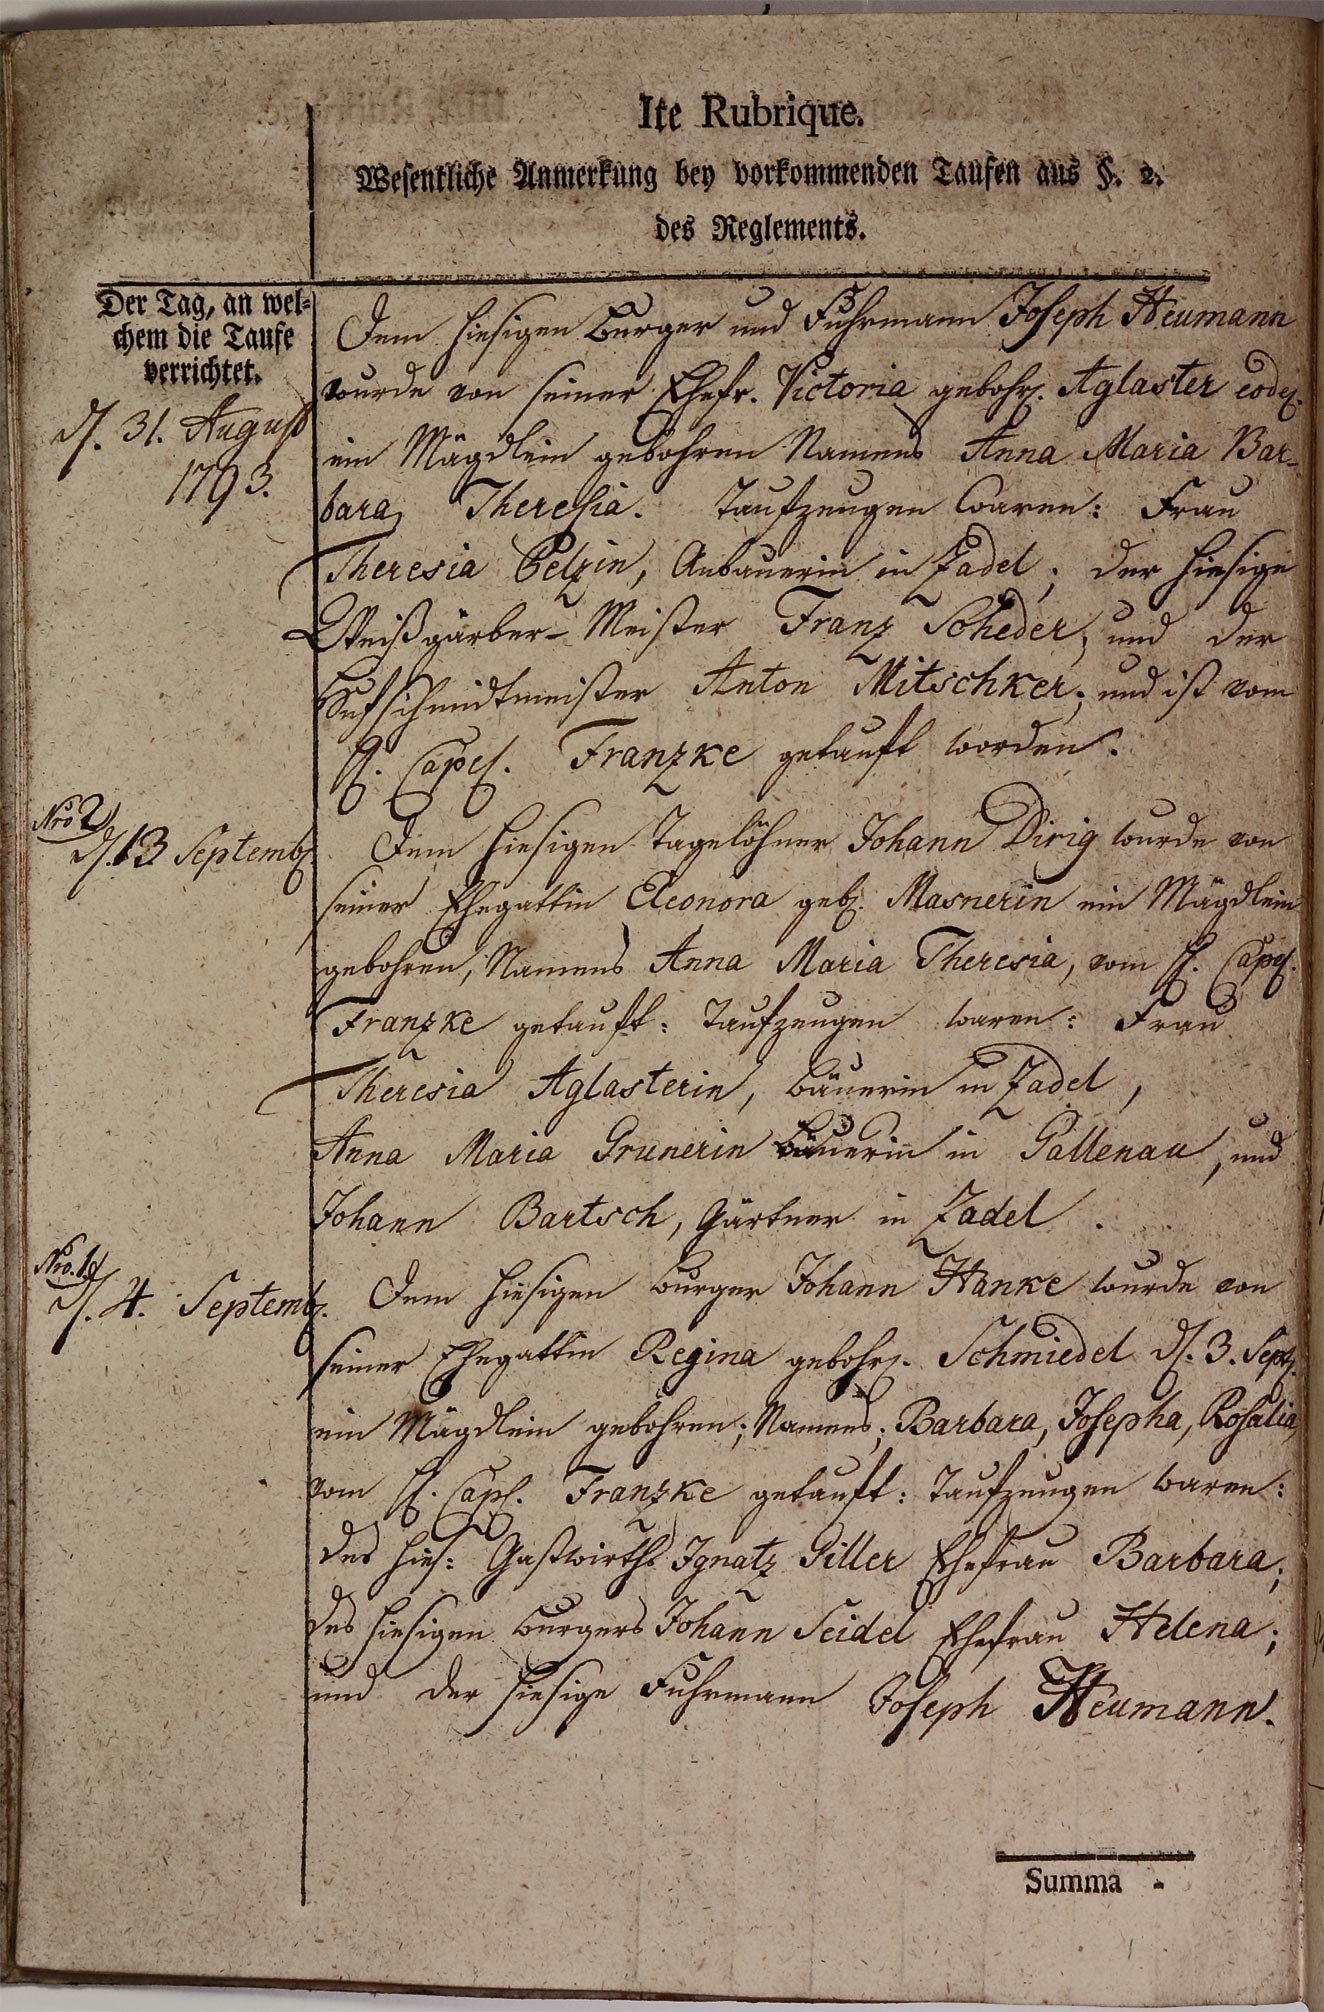 Ite Rubrique.
Wesentliche Anmerkung bey vorkommenden Taufen aus §. 2.
des Reglements.
Der Tag, an wel-
chem die Taufe
verrichtet.
d. 31. August
1793.
Dem hiesigen Burger und Fuhrmann Joseph Heumann
wurde von seiner Ehefr. Victoria gebohr. Aglaster eod.
ein Mägdlein gebohren Namens Anna Maria Bar-
bara Theresia. Taufzeugen waren: Frau
Theresia Pelzin, Anbauerin in Zadel; der hiesige
Weißgärber-Meister Franz Scheder, und der
Hufschmidtmeister Anton Mitschker; und ist vom
H. Capl. Franzke getauft worden.
Nro 2
d. 13 Septemb.
Dem hiesigen Tagelöhner Johann Dirig wurde von
seiner Ehegattin Eleonora geb. Masnerin ein Mägdlein
gebohren, Namens Anna Maria Theresia, vom H. Capl.
Franzke getauft: Taufzeugen waren: Frau
Theresia Aglasterin, Bäuerin in Zadel,
Anna Maria Grunerin Bäuerin in Gallenau, und
Johann Bartsch, Gärtner in Zadel.
Nro. 1
d. 4. Septemb.
Dem hiesigen Burger Johann Hanke wurde von
seiner Ehegattin Regina gebohr. Schmiedel d. 3. Sept.
ein Mägdlein gebohren; Namens; Barbara, Josepha, Rosalia,
vom H. Capl. Franzke getauft: Taufzeugen waren:
des hies: Gastwirths Ignatz Piller Ehefrau Barbara;
des hiesigen Burgers Johann Seidel Ehefrau Helena;
und der hiesige Fuhrmann Joseph Heumann.
Summa -